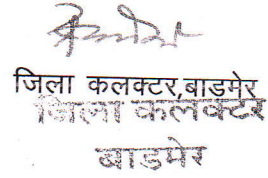 जिला कलक्टर,बाडमेर
जिला कलक्टर
बाडमेर